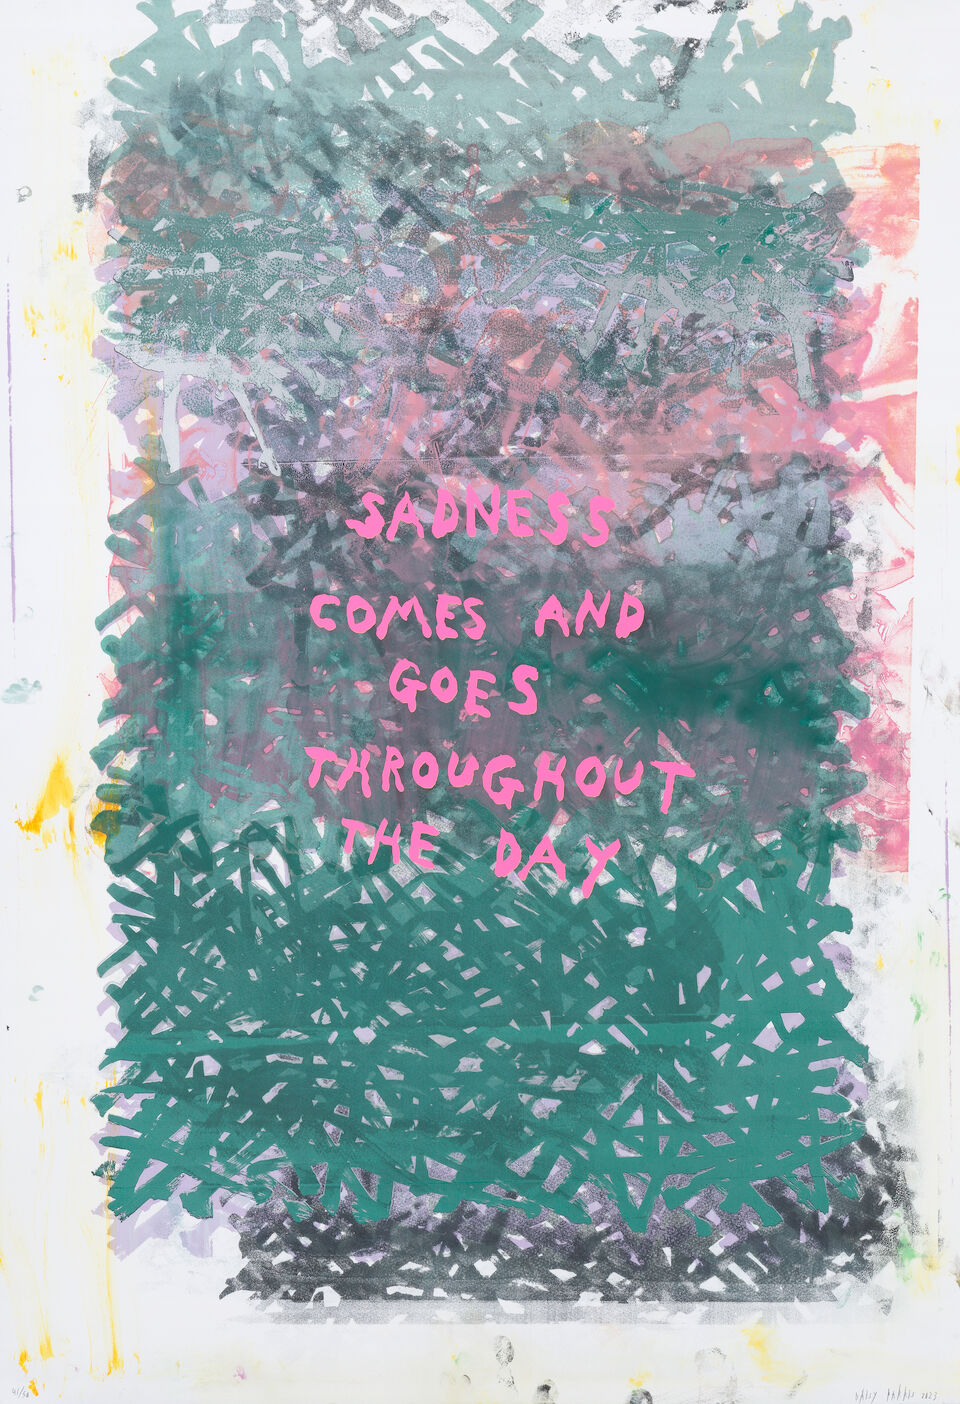 SADNESS
COMES AND
GOES
THROUGHOUT
THE DAY
DAISY PARRIS 2023